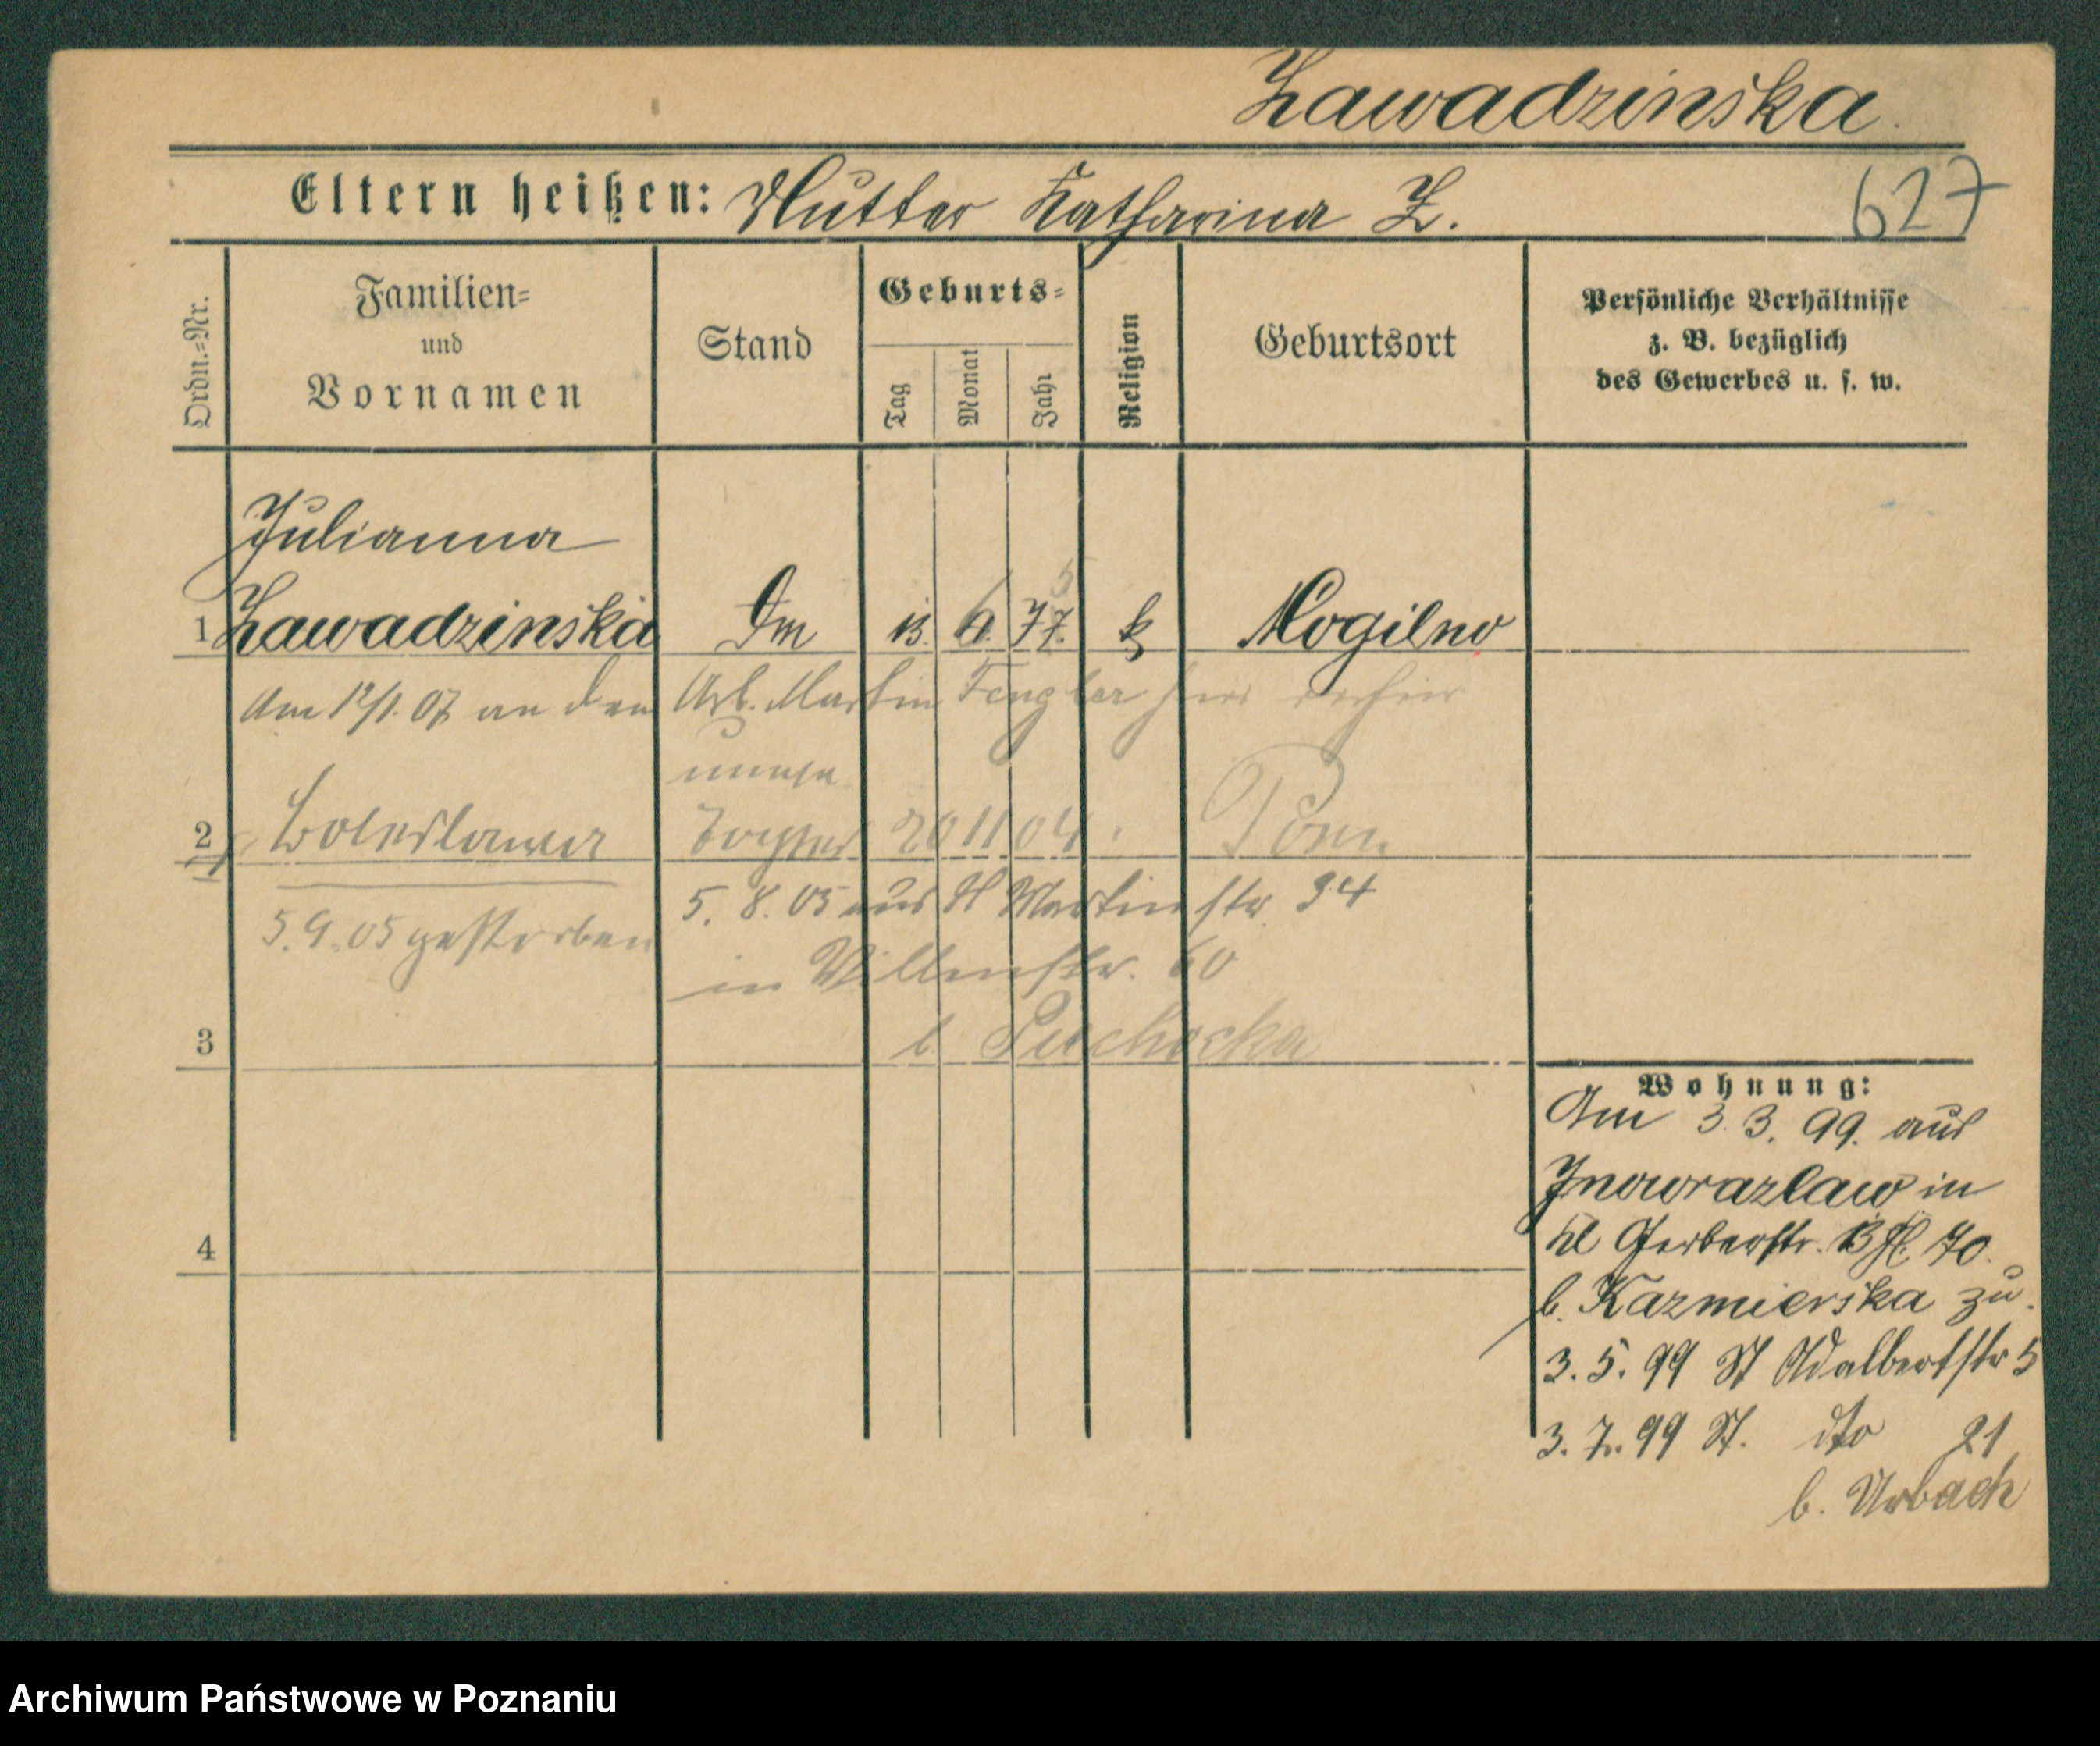 Zawadzinska.
Eltern heißen: Mutter Katharina Z.
627
Ordn.-Nr.
Familien-
und
Vornamen
Stand
Geburts-
Tag
Monat
Jahr
Religion
Geburtsort
Persönliche Verhältnisse
z. B. bezüglich
des Gewerbes u. s. w.
Julianna
1 Zawadzinska Dm 13. 6. 77. k Mogilno
5
Am 12/1. 07 an den Arb. Martin Fengler hier
unehe
2 Boleslawa Tochter 20 11 04 Posen
5. 8. 05 aus St Martinstr. 34
5.9.05 gestorben
in Villenstr. 60
b. Piechocka
3
4
Wohnung:
Am 3. 3. 99. aus
Inowrazlaw in
kl Gerberstr. 13 70.
b. Kazmierska zu.
3. 5. 99 St Adalbertstr 5
3. 7. 99 St. dto 21
b. Urbach
Archiwum Państwowe w Poznaniu